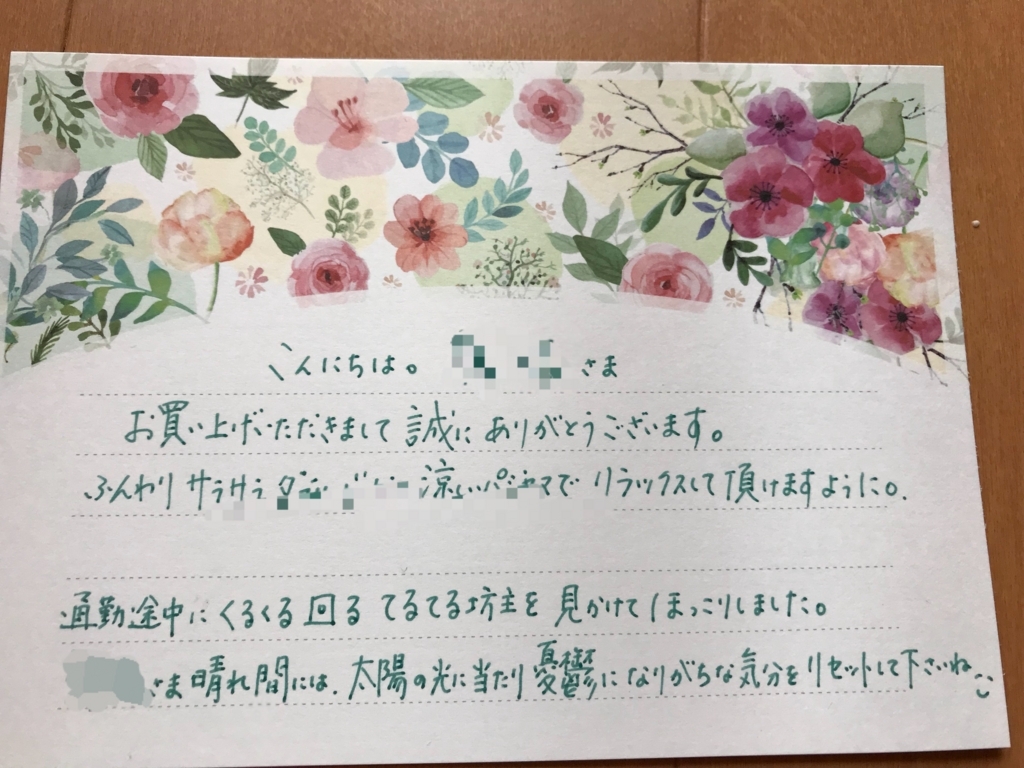 こんにちは。 さま
お買い上げいただきまして 誠に ありがとうございます。
ふんわり サラサラ 涼しいパジャマで リラックスして頂けますように。
通勤途中に くるくる 回る てるてる坊主を 見かけて ほっこりしました。
さま 晴れ間には、太陽の光に当たり 憂鬱に なりがちな 気分を リセットして下さいね